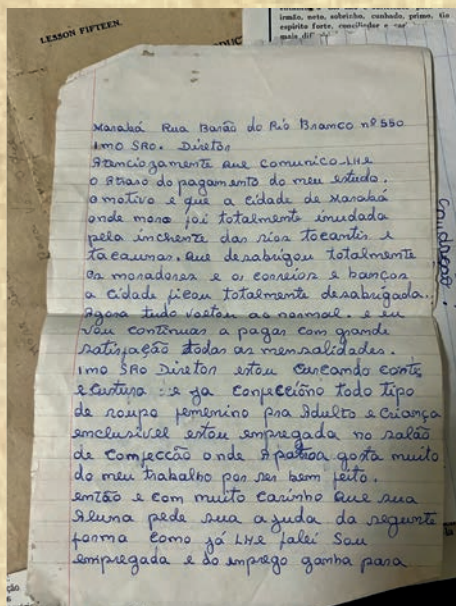 LESSON FIFTEEN.
irmão, neto, sobrinho, cunhado, primo, tio
espirito forte, conciliador e
mais
Marabá Rua Barão do Rio Branco nº 550
Imo SRO. Diretor
Atenciozamente que comunico-LHe
o Atraso do pagamento do meu estudo.
o motivo e que a cidade de Marabá
onde moro foi totalmente inudada
pela inchente das rios tocantis e
tacaiunas. que desabrigou totalmente
os moradores e os correios e banços
a cidade ficou totalmente desabrigada..
Agora tudo voltou ao normal. e eu
vou continuar a pagar com grande
satisfação todas as mensalidades.
Imo SRO Diretor estou cursando corte
e Custura :: e ja confecciono todo tipo
de roupo femenino pra Adulto e Criança
enclusivel estou empregada no salão
de comfecção onde A patroa gosta muito
do meu trabalho por ser bem feito.
então e com muito carinho que sua
Aluna pede sua ajuda da segunte
forma como já LHe falei Sou
empregada e do emprego ganha para